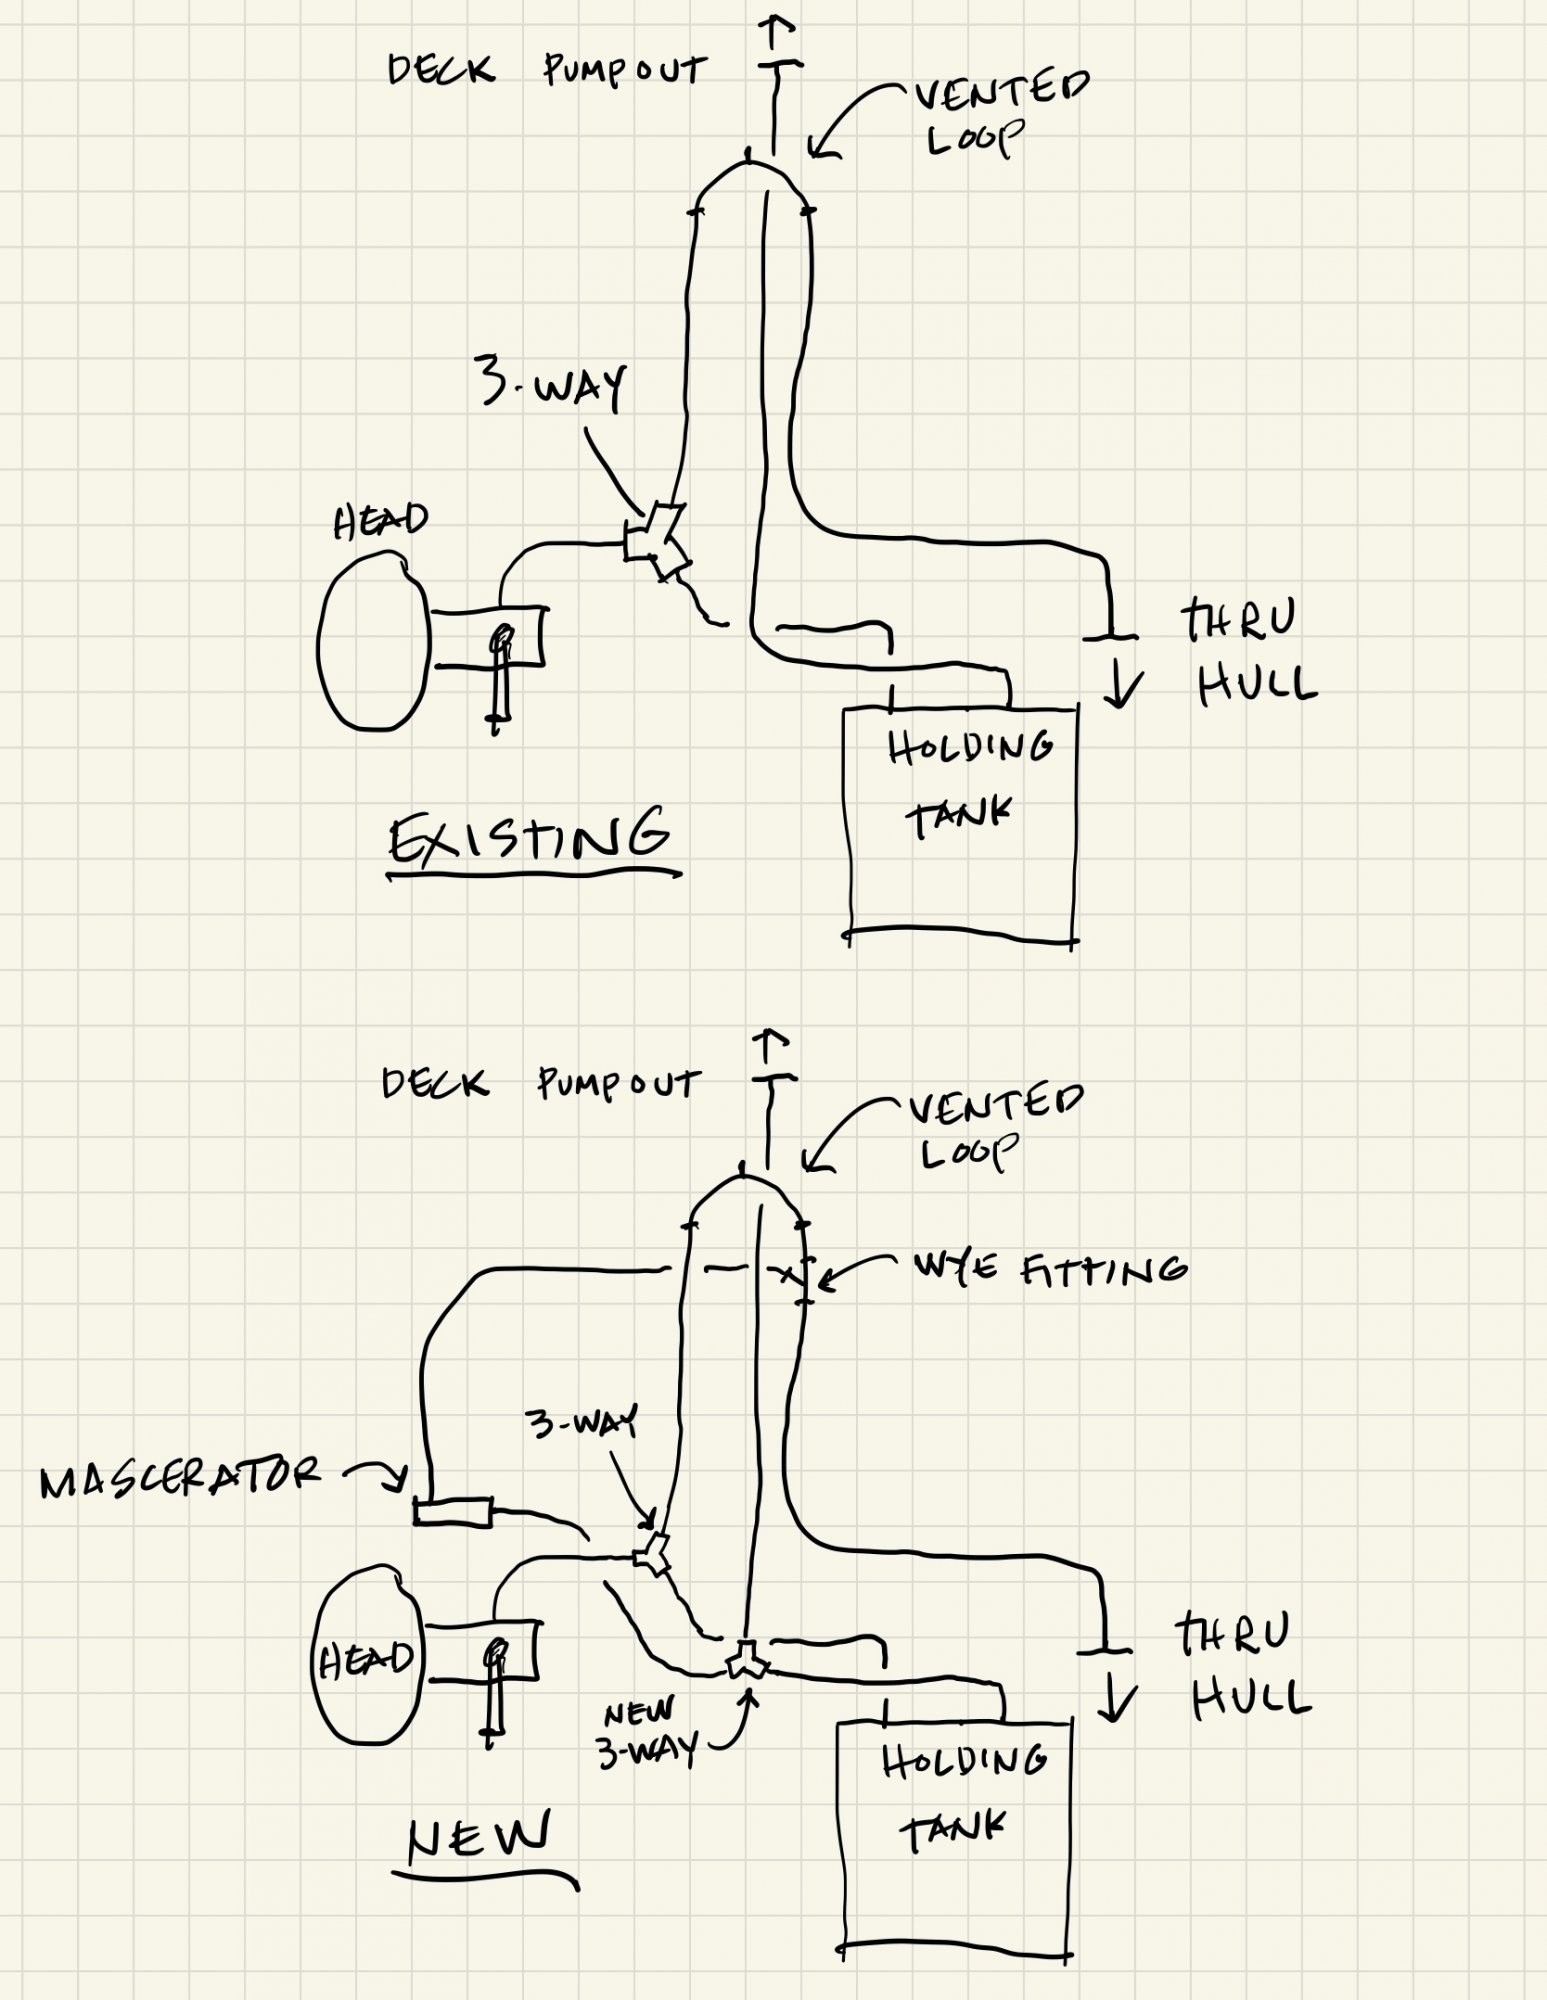 DECK PUMPOUT
VENTED
LOOP
3-WAY
HEAD
THRU
HULL
HOLDING
TANK
EXISTING
DECK PUMPOUT
VENTED
LOOP
WYE FITTING
3-WAY
MASCERATOR
HEAD
THRU
HULL
NEW
3-WAY
HOLDING
TANK
NEW